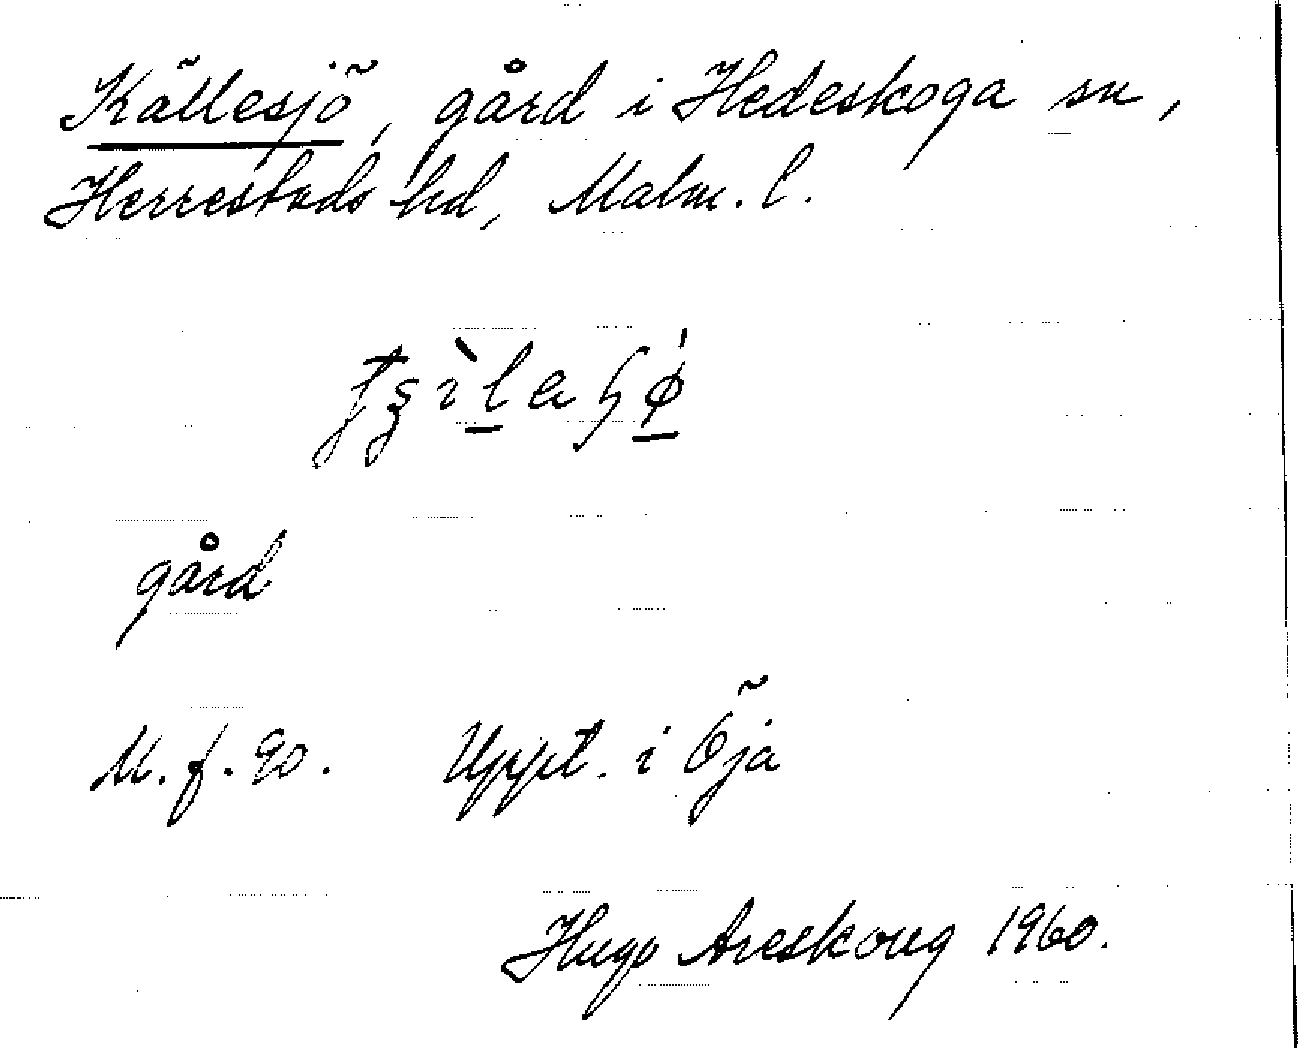 Källesjö, gård i Hedeskoga sn,
Herrestads hd, Malm. l.
gård
M. f. 90. Uppt. i Öja
Hugo Areskoug 1960.